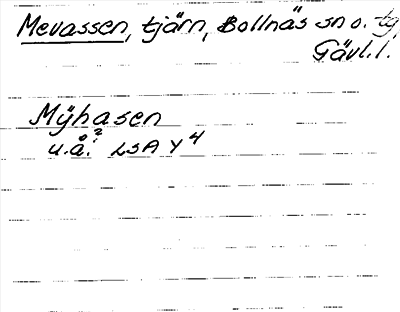 Mevassen, tjärn, Bollnäs sn o. tg
Gävl.l.
Mÿhasen
u.å.? LSA Y4